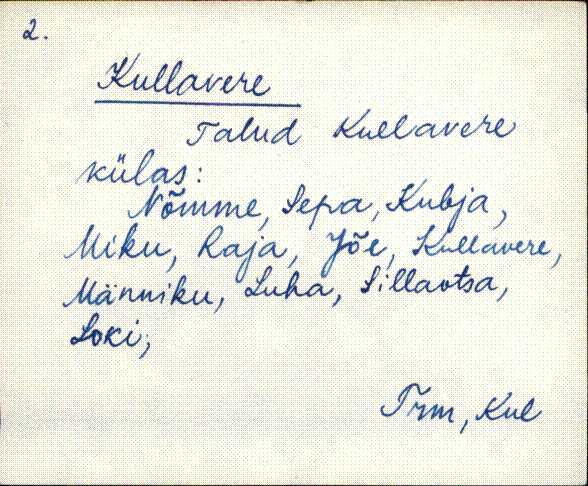 2.
Kullavere
Talud Kullavere
külas:
Nõmme, Sepa, Kubja,
Miku, Raja, Jõe, Kullavere,
Männiku, Luha, Sillaotsa,
Soki;
Trm, Kul